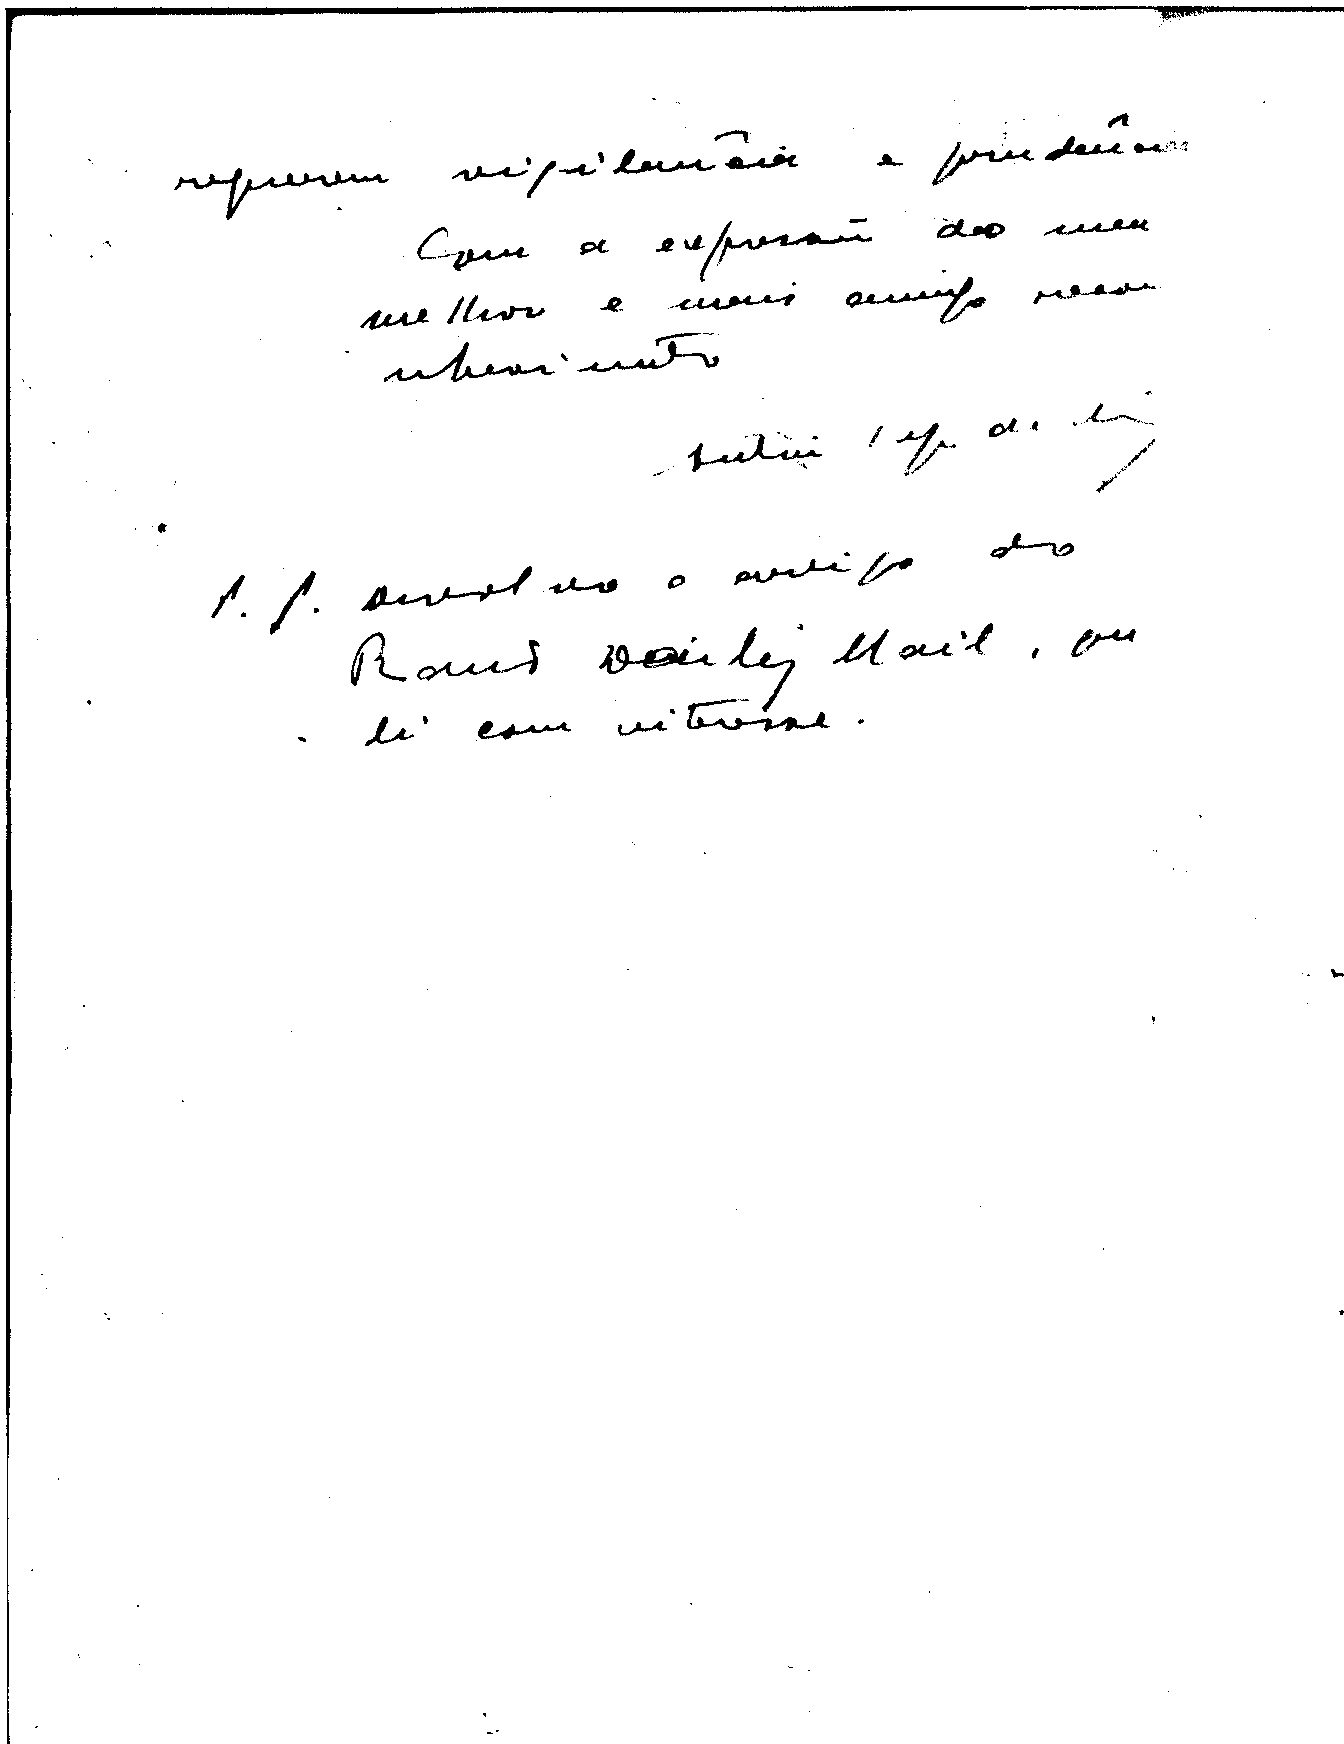 requerem vigilância e prudência
Com a expressão do meu
melhor e mais amigo reco
nhecimento
P. S. devolvo o artigo do
Rand Daily Mail, que
li com interesse.